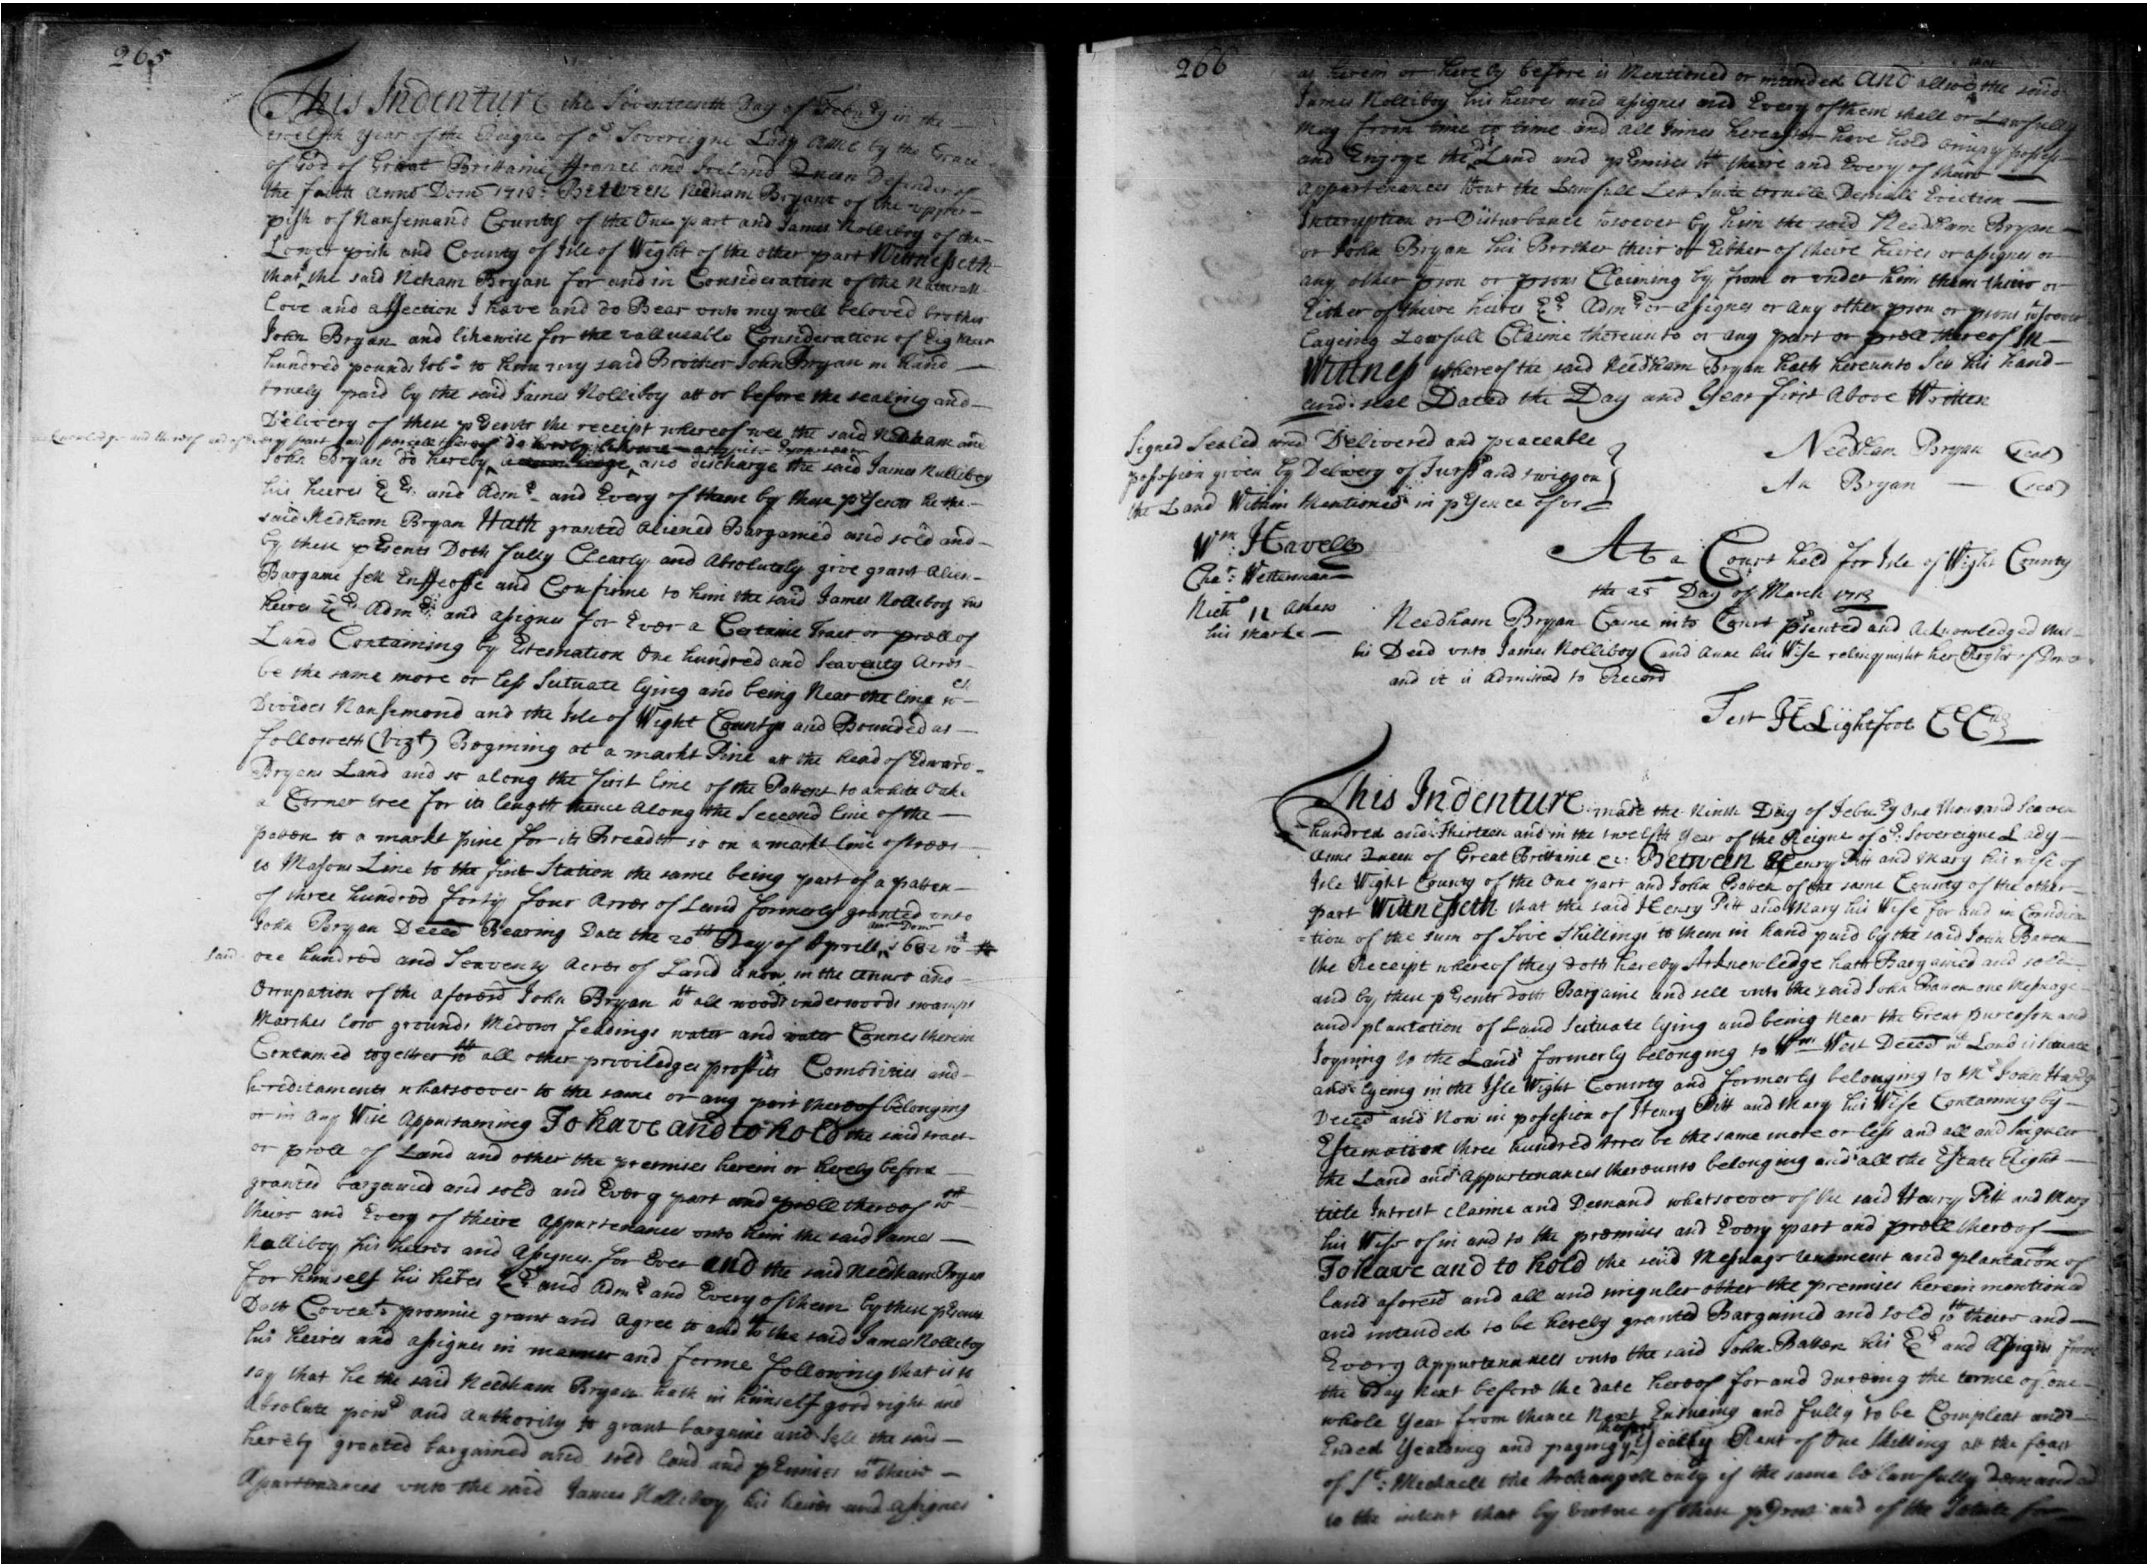 265
This Indenture the Seventeenth Day of Febuary in the
twelfth Year of the Reigne of or Sovereigne Lady Anne by the Grace
of God of Great Brittaine France and Ireland Queen Defender of
the faith Anno Dom 1713 Between Nedham Bryant of the upper
pish of Nansemand County of the One part and James Nolliboy of the
Lower pish and County of Isle of Wight of the other part Wittnesseth
that the said Neham Bryan for and in Consideration of the Naturall
Love and affection I have and do Bear unto my well beloved brother
John Bryan and likewise for the vallueable Consideration of Eighteen
hundred pounds Tobo to him my said Brother John Bryan in hand
truely paid by the said James Nolliboy att or before the sealing and
Delivery of these pSents the receipt whereof wee the said Nedham and
John Bryan do hereby and discharge the said James Nolliboy
his heires Exrs and Admrs and Every of them by these pSents he the
said Nedham Bryan Hath granted aliened Bargained and sold and
by these pSents Doth fully Clearly and Absolutely give grant Alien
Bargane sell Enffeoffe and Confirme to him the said James Nolliboy his
heires Exrs Admrs and asignes for Ever a Certaine Tract or prcell of
Land Containing by Estemation One hundred and Seaventy Acres
be the same more or less Sutuate lying and being Near the line wch
Divides Nansemond and the Isle of Wight County and Bounded as
followeth (vizt) Begining at a markt Pine att the head of Edward
Bryans Land and so along the first line of the Pattent to a white Oake
a Corner tree for its length thence along the Second line of the
patten to a markt pine for its Breadth so on a markt line of trees
to Masons Line to the first Station the same being part of a patten
of three hundred forty four Acres of Land formerly granted unto
John Bryan Deced Bearing Date the 20th Day of Aprill Ano Dom 1682 wch
said one hundred and Seaventy Acres of Land is now in the tenure and
Occupation of the aforesd John Bryan wth all woods underwoods swamps
Marshes low grounds Medows feadings water and water Cornes therein
Contained together wth all other priviledges proffits Comodities and
hereditaments whatsoever to the same or any part thereof belonging
or in any Wise Appurtaining To have and to hold the said tract
or prcell of Land and other the premises herein or hereby before
granted bargained and sold and Every part and prcell thereof wth
theire and Every of theire appurtenances unto him the said James
Nolliboy his heires and Asignes for Ever and the said Needham Bryan
for himself his heires Exrs and Admrs and Every of them by these pSents
Doth Covent promise grant and agree to and wth the said James Nolliboy
his heires and asignes in manner and forme following that is to
say that he the said Needham Bryan hath in himself good right and
Absolute power and authority to grant bargaine and Sell the said
hereby granted bargained and sold land and pEmises wth their
Apurtenances unto the said James Nolliboy his heires and asignes
266
as herein or hereby before is Mentioned or intended and allwe the said
James Nolliboy his heires and asignes and Every of them shall or Lawfully
may from time to time and all times hereafter have hold occupy posess
and Enjoye the sd Land and pEmises wth theire and Every of their
appurtenances wthout the Lawfull Let Sute trouble Deniall Eviction
Interuption or Disturbance wtsoever by him the said Needham Bryan
or John Bryan his Brother their or Either of theire heires or asignes or
any other prson or prsons Claiming by from or under him them their or
Either of theire heires Exrs Admrs or asignes or any other prson or prsons wtsoever
layeing Lawfull Claime thereunto or any part or prcell thereof In
Wittness whereof the said Needham Bryan hath hereunto Set his hand
and seal Dated the Day and Year first Above Written
Signed Sealed and Delivered and peaceable
posesion given by Delivery of Turff and twigg on
the Land Within Mentioned in pSence of us
Needham Bryan (sea)
An Bryan (sea)
Wm Havell
Cha: Wetterman
Nicho 12 Askew
his marke
At a Court held for Isle of Wight County
the 25 Day of March 1713
Needham Bryan Came into Court pSented and Acknowledged this
his Deed unto James Nolliboy (and Anne his Wife relinquisht her Right of Dower
and it is Admitted to Record
Test H Lightfoot CCCur
This Indenture made the Ninth Day of Febuary One thousand Seaven
hundred and Thirteen and in the twelfth Year of the Reigne of or Sovereigne Lady
Anne Queen of Great Brittaine &c: Between Henry Pitt and Mary his wife of
Isle Wight County of the One part and John Batten of the same County of the other
part Wittnesseth that the said Henry Pitt and Mary his Wife for and in Considera
=tion of the sum of five Shillings to them in hand paid by the said John Batten
the Receipt whereof they doth hereby Acknowledge hath Bargained and sold
and by these pSents doth Bargaine and sell unto the said John Batten one Mesuage
and plantation of Land Sutuate lying and being Near the Great and
Joyning to the Land formerly belonging to Wm West Deced wch Land is sutuate
and lyeing in the Isle Wight County and formerly belonging to Mr John Hardy
Deced and Now in posesion of Henry Pitt and Mary his Wife Containing by
Estemation three hundred Acres be the same more or less and all and singuler
the Land and Appurtenances thereunto belonging and all the Estate Right
title Intrest claime and Demand whatsoever of the said Henry Pitt and Mary
his Wife of in and to the premises and Every part and prcell thereof
To have and to hold the said Mesuage tenament and plantation of
land aforesd and all and singuler other the premises herein mentioned
and intended to be hereby granted Bargained and sold wth theire and
Every appurtenances unto the said John Batten his Exrs and Asignes from
the Day next before the date hereof for and dureing the terme of one
whole Year from thence Next Ensueing and fully to be Compleat and
Ended Yealding and paying therefore Yearly Rent of One Shilling att the feast
of St: Mechaell the Archangell only if the same be lawfully demanded
to the intent that by vertue of these pSents and of the Statute for